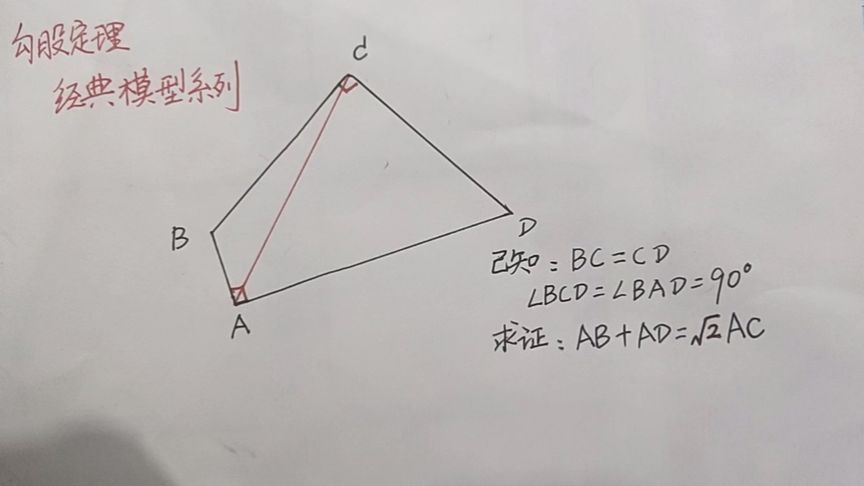 勾股定理
经典模型系列
C
B
D
A
已知：BC=CD
∠BCD=∠BAD=90°
求证：AB+AD=√2AC